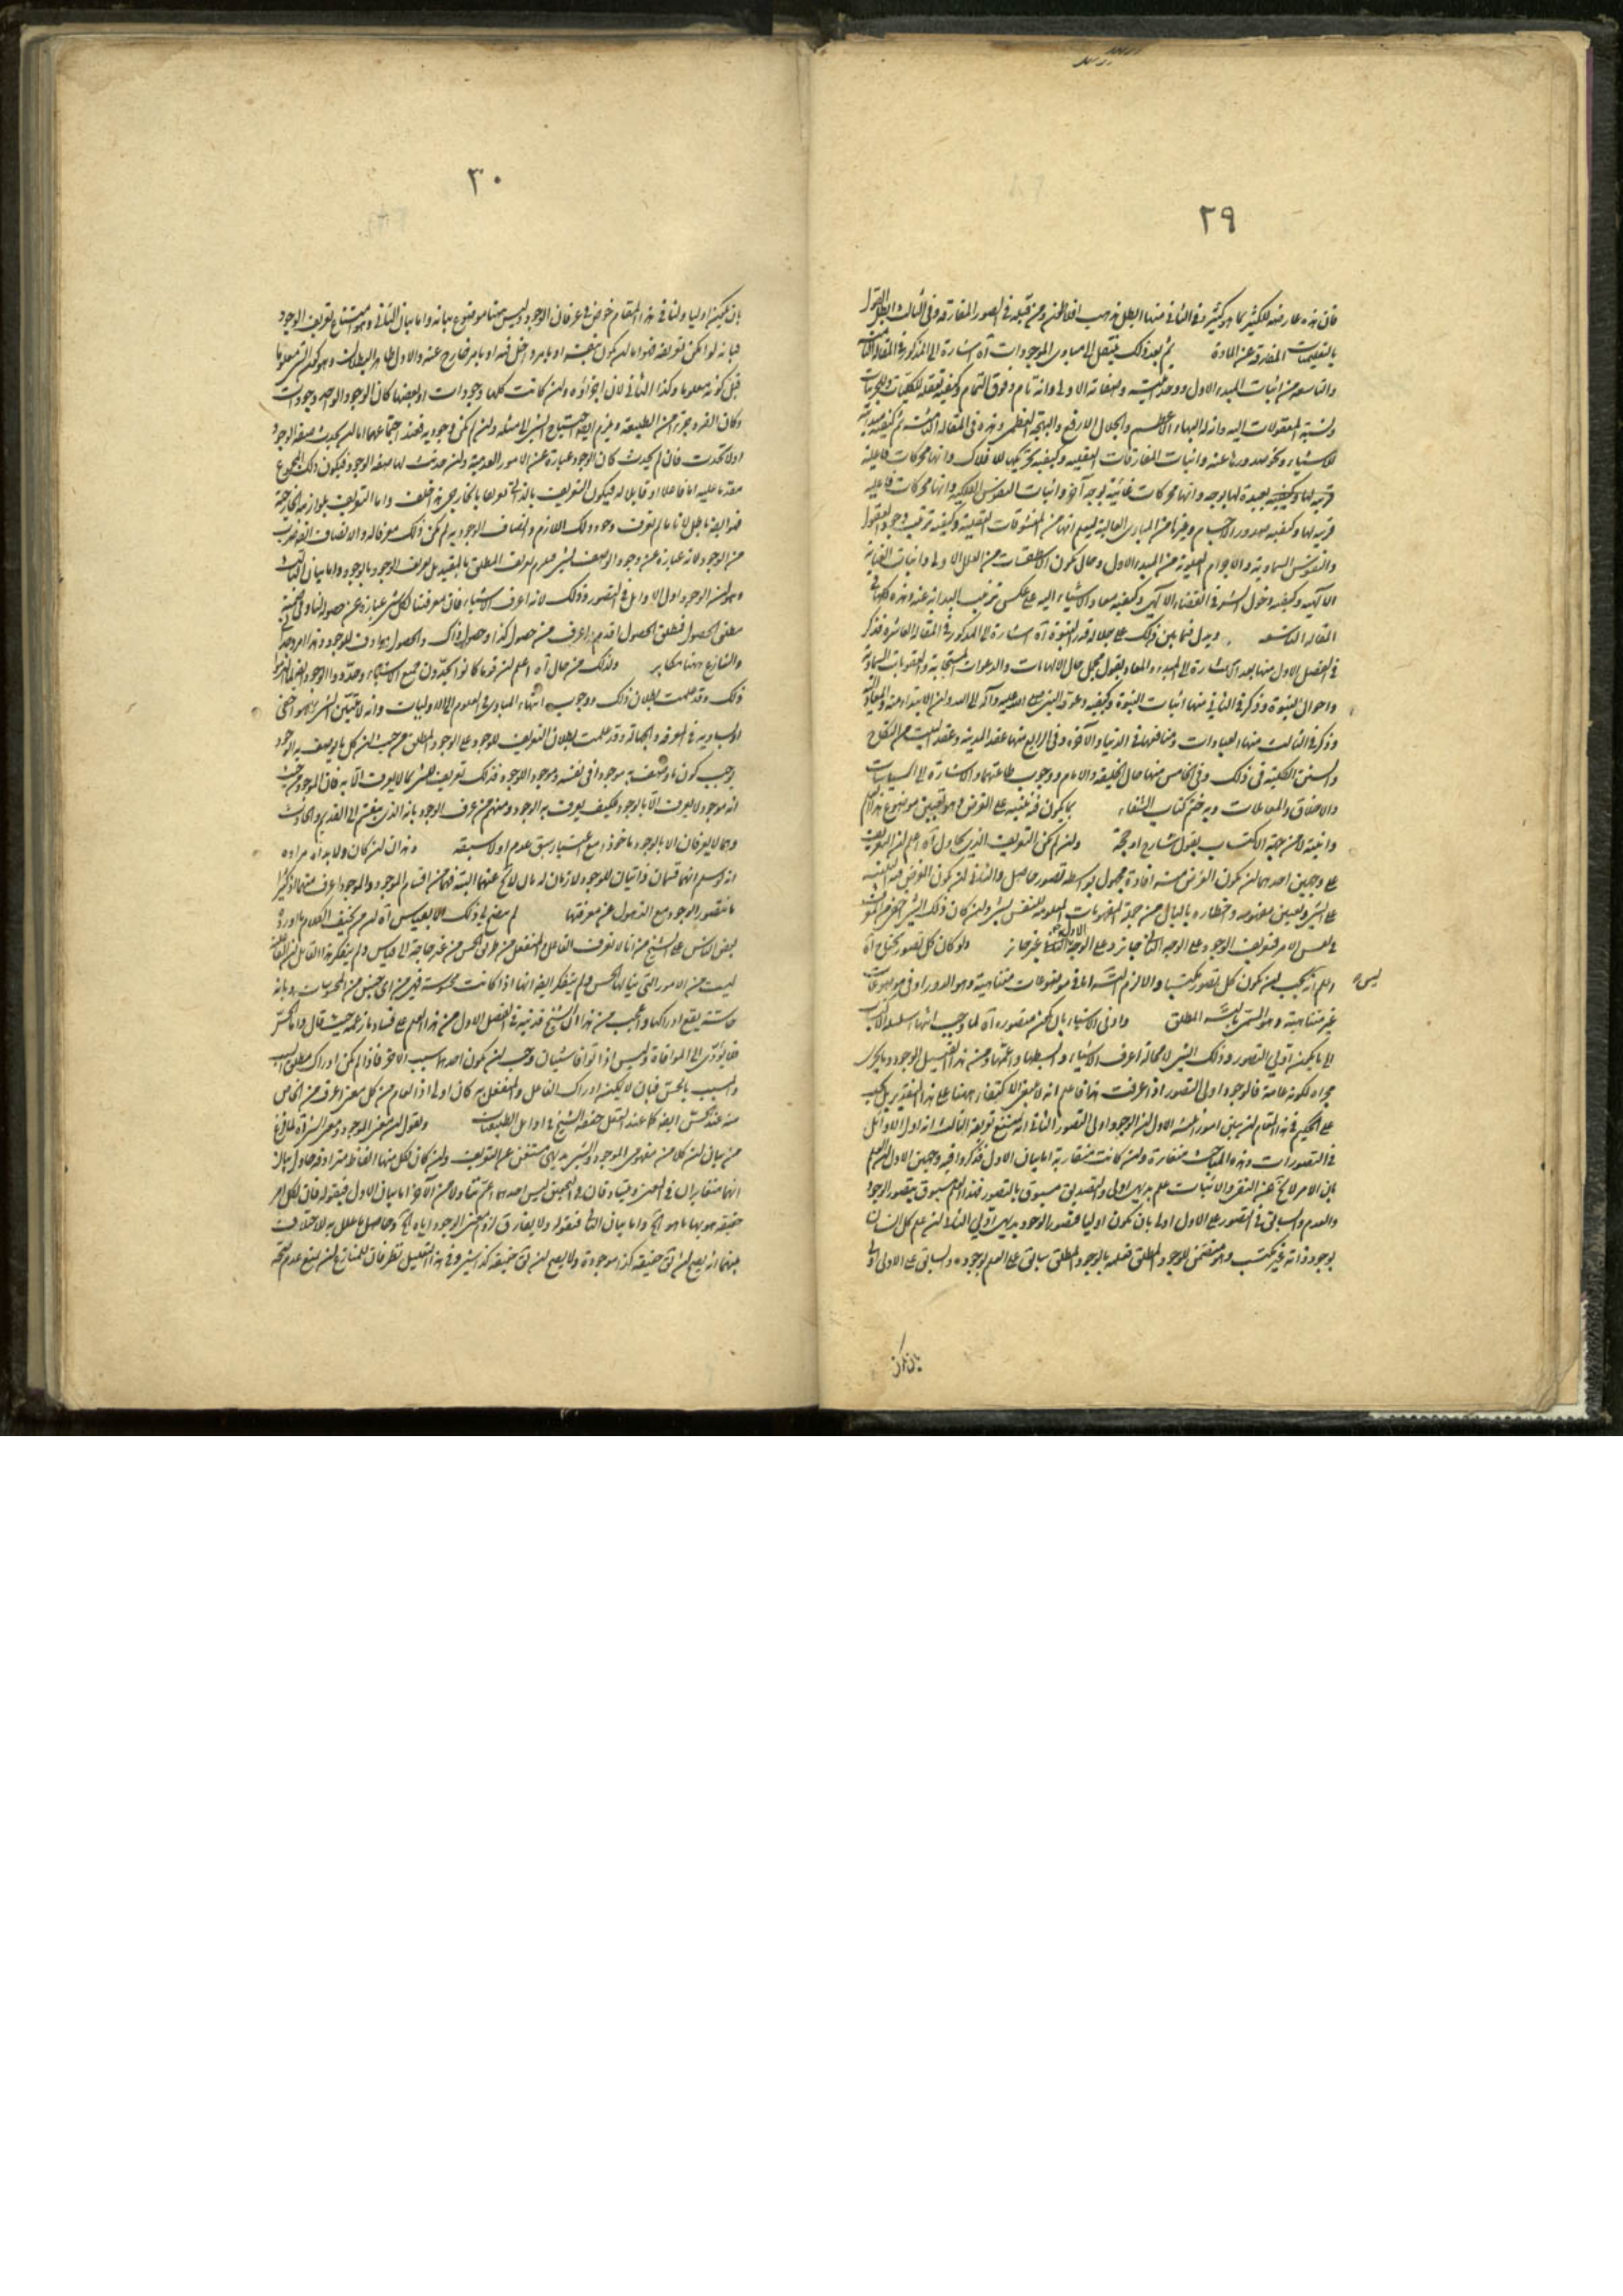 ٢٩
فان هذه عارضة للكثير بما هو كثير وفى الثانى منها ابطل مذهب افلاطون ومن قبله فى الصور المفارقة وفى الثالث ابطل القول
بالتعليميات المفارقة عن المادة ثم بعد ذلك ننتقل الى مبادى الموجودات آه اشارة الى المذكور فى المقالة الثامنة
والتاسعة من اثبات المبدء الاول ووحدانيته وصفاته الاولى وانه تام وفوق التمام وكيفية تعقله للكليات والجزئيات
ونسبة المعقولات اليه وانه له البهاء الاعظم والجلال الارفع والبهجة العظمى وهذه فى المقالة الثامنة ثم كيفية
للاشياء ونحو صدورها عنه واثبات المفارقات العقلية وكيفية تحريكها للافلاك وانها محركات
بعيدة لها بوجه وانها محركات غائية بوجه آخر واثبات النفوس الفلكية وانها محركات فاعلية
قريبة لها وكيفية صدور الاجسام وغيرها عن المبادى العالية ليعلم انها من المعشوقات العقلية وكيفية ترتيب وجود العقول
والنفوس السماوية والاجرام العلوية عن المبدء الاول وحال تكون الاسطقسات من العلل الاولى واثبات العناية
الآلهية وكيفية دخول الشر فى القضاء الآلهى وكيفية معاد الاشياء اليه على عكس ترتيب البداية عنه وهذه كلها فى
المقالة التاسعة ويدل فيما بين ذلك على جلالة قدر النبوة آه اشارة الى المذكور فى المقالة العاشرة فذكر
فى الفصل الاول منها بعد الاشارة الى المبدء والمعاد بقول مجمل حال الالهامات والدعوات المستجابة والعقوبات السماوية
واحوال النبوة وذكر فى الثانى منها اثبات النبوة وكيفية دعوة النبى صلى الله عليه وآله الى الله وان الابتداء منه والمعاد اليه
وذكر فى الثالث منها العبادات ومنافعها فى الدنيا والآخرة وفى الرابع منها عقد المدينة وعقد البيت من النكاح
والسنن الكلية فى ذلك وفى الخامس منها حال الخليفة والامام ووجوب طاعتهما والاشارة الى السياسات
والاخلاق والمعاملات وبه ختم كتاب الشفاء
وانيته لا من جهة الاكتساب بقول شارح او حجة ولئن لم يكن التعريف الذى يحاول آه اعلم ان التعريف
على وجهين احدهما ان يكون الغرض منه افادة مجهول بواسطة تصور حاصل والثانى ان يكون الغرض فيه التنبيه
على الشئ وتعيين مفهومه واخطاره بالبال من جملة المفهومات المعلومة للنفس
فتعريف الوجود على الوجه الثانى جائز وعلى الوجه الاول غير جائز ولو كان كل تصور يحتاج آه
اعلم انه ليس يجب ان يكون كل تصور مكتسبا والا لزم التسلسل اما فى موضوعات متناهية وهو الدور او فى موضوعات
غير متناهية وهو المسمى بالتسلسل المطلق واولى الاشياء بان يكون متصورة آه لما وجب انتهاء سلسلة الاكتساب
الى ما يكون اولى التصور وذلك الشئ لا محالة اعرف الاشياء وابسطها واعمها ومن هذا القبيل الوجود وما يجرى
مجراه لكونه عامة فالوجود اولى التصور اذا عرفت هذا فاعلم انه لا ينبغى الاكتفاء ههنا على هذا التقدير بل يجب
على الحكيم فى هذا المقام ان يبين امورا ثلثة الاول ان الوجود اولى التصور الثانى انه يمتنع تعريفه الثالث انه اول الاوائل
فى التصورات وهذه المباحث متغايرة وان كانت متقاربة اما بيان الاول فذكروا فيه وجهين الاول ان العلم
بان الامر لا يخ عن النفى والاثبات علم بديهى اولى والتصديق مسبوق بالتصور فهذا العلم مسبوق بتصور الوجود
والعدم والسابق فى التصور على الاول اولى بان يكون اوليا فتصور الوجود بديهى اولى الثانى ان علم كل انسان
بوجود ذاته غير مكتسب وهو متضمن للوجود المطلق فعلمه بالوجود المطلق سابق على العلم بوجوده والسابق على الاولى اولى
بان يكون
٣٠
بان يكون اوليا ولنا فى هذا المقام خوض فى عرفان الوجود ليس ههنا موضع بيانه واما بيان الثانى وهو امتناع تعريف الوجود
فبانه لو امكن تعريفه فهو اما ان يكون بنفسه او بامر داخل فيه او بامر خارج عنه والاول ظاهر البطلان وهو كون الشئ معلوما
قبل كونه معلوما وكذا الثانى لان اجزاؤه ان كانت كلها وجودات او بعضها كان الوجود الواحد وجودات
وكان الفرد جزء من الطبيعة ويلزم ايضا احتياج الشئ الى مثله وان لم يكن وجودية فعند اجتماعها اما ان يحدث صفة الوجود
او لا تحدث فان لم يحدث كان الوجود عبارة عن الامور العدمية وان حدثت لها صفة الوجود فيكون ذلك المجموع
متقدما عليه اما فاعلا او قابلا له فيكون التعريف بالذاتى تعريفا بالخارجى هذا خلف واما التعريف بلوازمه الخارجة
فهو ايضا باطل لانا ما لم نعرف وجود ذلك اللازم واتصاف الوجود به لم يكن ذلك معرفا له والاتصاف ايضا ضرب
من الوجود لانه عبارة عن وجود الوصف لشئ فيلزم تعريف المطلق بالمقيد بل تعريف الوجود بالوجود واما بيان الثالث
وهو ان الوجود اول الاوايل فى التصور فذلك لانه اعرف الاشياء فان معرفتنا لكل شئ عبارة عن حصوله لنا
مطلق الحصول فمطلق الحصول اقدم واعرف من حصول كذا او حصول ذاك والحصول مرادف للوجود
والتنازع ههنا مكابر ولذلك من حاول آه اعلم ان قوما كانوا يحبون ان
ذلك وقد علمت بطلان ذلك ووجوب انتهاء المبادى فى العلوم الى الاوليات وانه لا يتبين الشئ بما هو اخفى
او يساويه فى المعرفة والجهالة وقد علمت بطلان التعريف للوجود على الوجود المطلق من حيث ان كل ما يوصف به الوجود
يوجب كون ما وصف به موجودا فى نفسه وموجودا للوجود فذلك تعريف للشئ بما لا يعرف الا به فان الموجود من حيث
انه موجود لا يعرف الا بالوجود فكيف يعرف به الوجود ومنهم من عرف الوجود بانه الذى ينقسم الى القديم والحادث
وهما لا يعرفان الا بالوجود ماخوذا مع اعتبار سبق عدم او لا سبقه وهذان ان كان ولا بد آه مراده
انه لو سلم انهما قسمان ذاتيان للوجود لازمان له بان لا يخ عنهما البتة فهما من اقسام الوجود والموجود اعرف منهما اذ كثيرا
ما نتصور الوجود مع الذهول عن معرفتهما لم يتضح لى ذلك الا بقياس آه
بعض الناس على الشيخ من انا لا نعرف الفاعل والمنفعل من طريق الحس من غير حاجة الى قياس ولم يتفكر هذا القائل ان الفاعلية
ليست من الامور التى ينالها الحس ولم يتفكر ايضا انها اذا كانت محسوسة فهى من اى جنس من المحسوسات وباية
حاسة يقع ادراكها والعجب من هذا ان الشيخ قد نبه فى الفصل الاول من هذا العلم على فساد ما زعمه حيث قال واما الحس
فلا يؤدى الا الى الموافاة وليس اذا توافى شيئان وجب ان يكون احدهما سببا للاخر فاذا لم يكن ادراك مطلق السبب
والمسبب بالحس فبان لا يمكنه ادراك الفاعل والمنفعل به كان اولى اذ العام من كل معنى اعرف من الخاص
منه عند الحس ايضا كما عند العقل حققه الشيخ فى اوايل الطبيعيات ونقول ان معنى الوجود ومعنى الشئ آه لما فرغ
من بيان ان كلا من مفهومى الموجود والشئ بديهى مستغن عن التعريف وان كان لكل منها الفاظ مترادفة حاول بيان
انهما متغايران فى المعنى
حقيقة هو بها ما هو آه واما بيان الثانى فبقوله ولا يفارق لزوم معنى الوجود اياه آه وحاصل ما علل به للاختلاف
بينهما انه يصح ان يق حقيقة كذا موجودة ولا يصح ان يق حقيقة كذا شئ وفى هذا التعليل نظر فان للمنازع ان يمنع عدم صحة